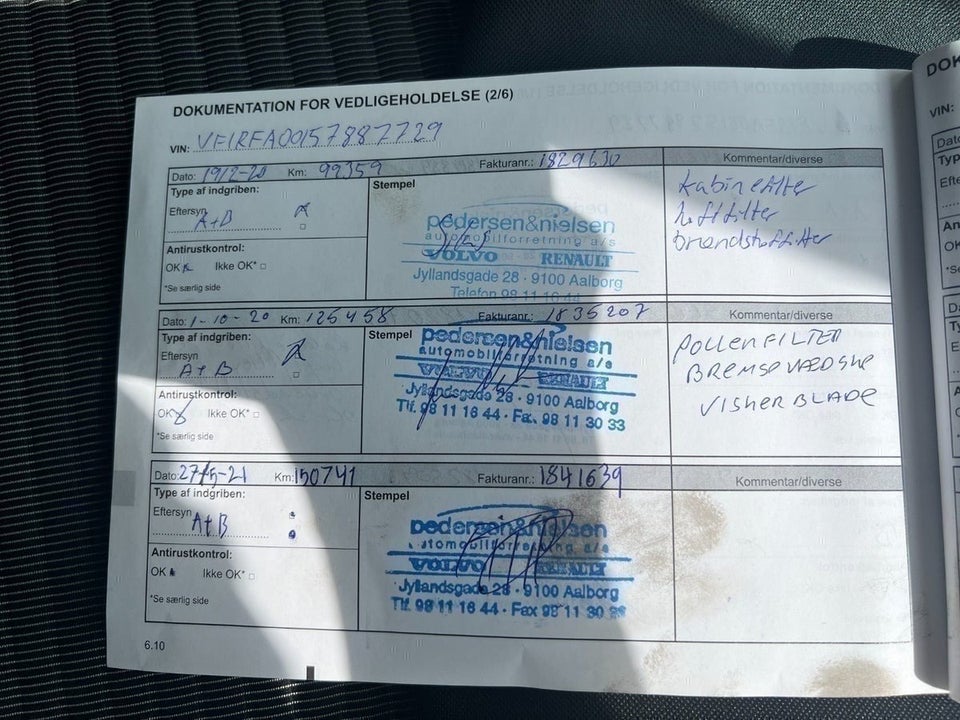 DOKUMENTATION FOR VEDLIGEHOLDELSE (2/6)
VIN: VF1RFA00157887729
Dato: 19/2-20 Km: 99359 Fakturanr.: 1829630 Kommentar/diverse
Type af indgriben: Stempel
Eftersyn
A+B
Antirustkontrol:
OK Ikke OK*
*Se særlig side
pedersen&nielsen
automobilforretning a/s
VOLVO RENAULT
Jyllandsgade 28 · 9100 Aalborg
Telefon 98 11 16 44
kabinefilter
luftfilter
brændstoffilter
Dato: 1-10-20 Km: 125458 Fakturanr.: 1835207 Kommentar/diverse
Type af indgriben: Stempel
Eftersyn
A+B
Antirustkontrol:
OK Ikke OK*
*Se særlig side
pedersen&nielsen
automobilforretning a/s
VOLVO RENAULT
Jyllandsgade 28 · 9100 Aalborg
Tlf. 98 11 16 44 · Fax 98 11 30 33
POLLENFILTER
BREMSEVÆDSKE
VISKERBLADE
Dato: 27/5-21 Km: 150741 Fakturanr.: 1841639 Kommentar/diverse
Type af indgriben: Stempel
Eftersyn
A+B
Antirustkontrol:
OK Ikke OK*
*Se særlig side
pedersen&nielsen
automobilforretning a/s
VOLVO RENAULT
Jyllandsgade 28 · 9100 Aalborg
Tlf. 98 11 16 44 · Fax 98 11 30
6.10
VIN: